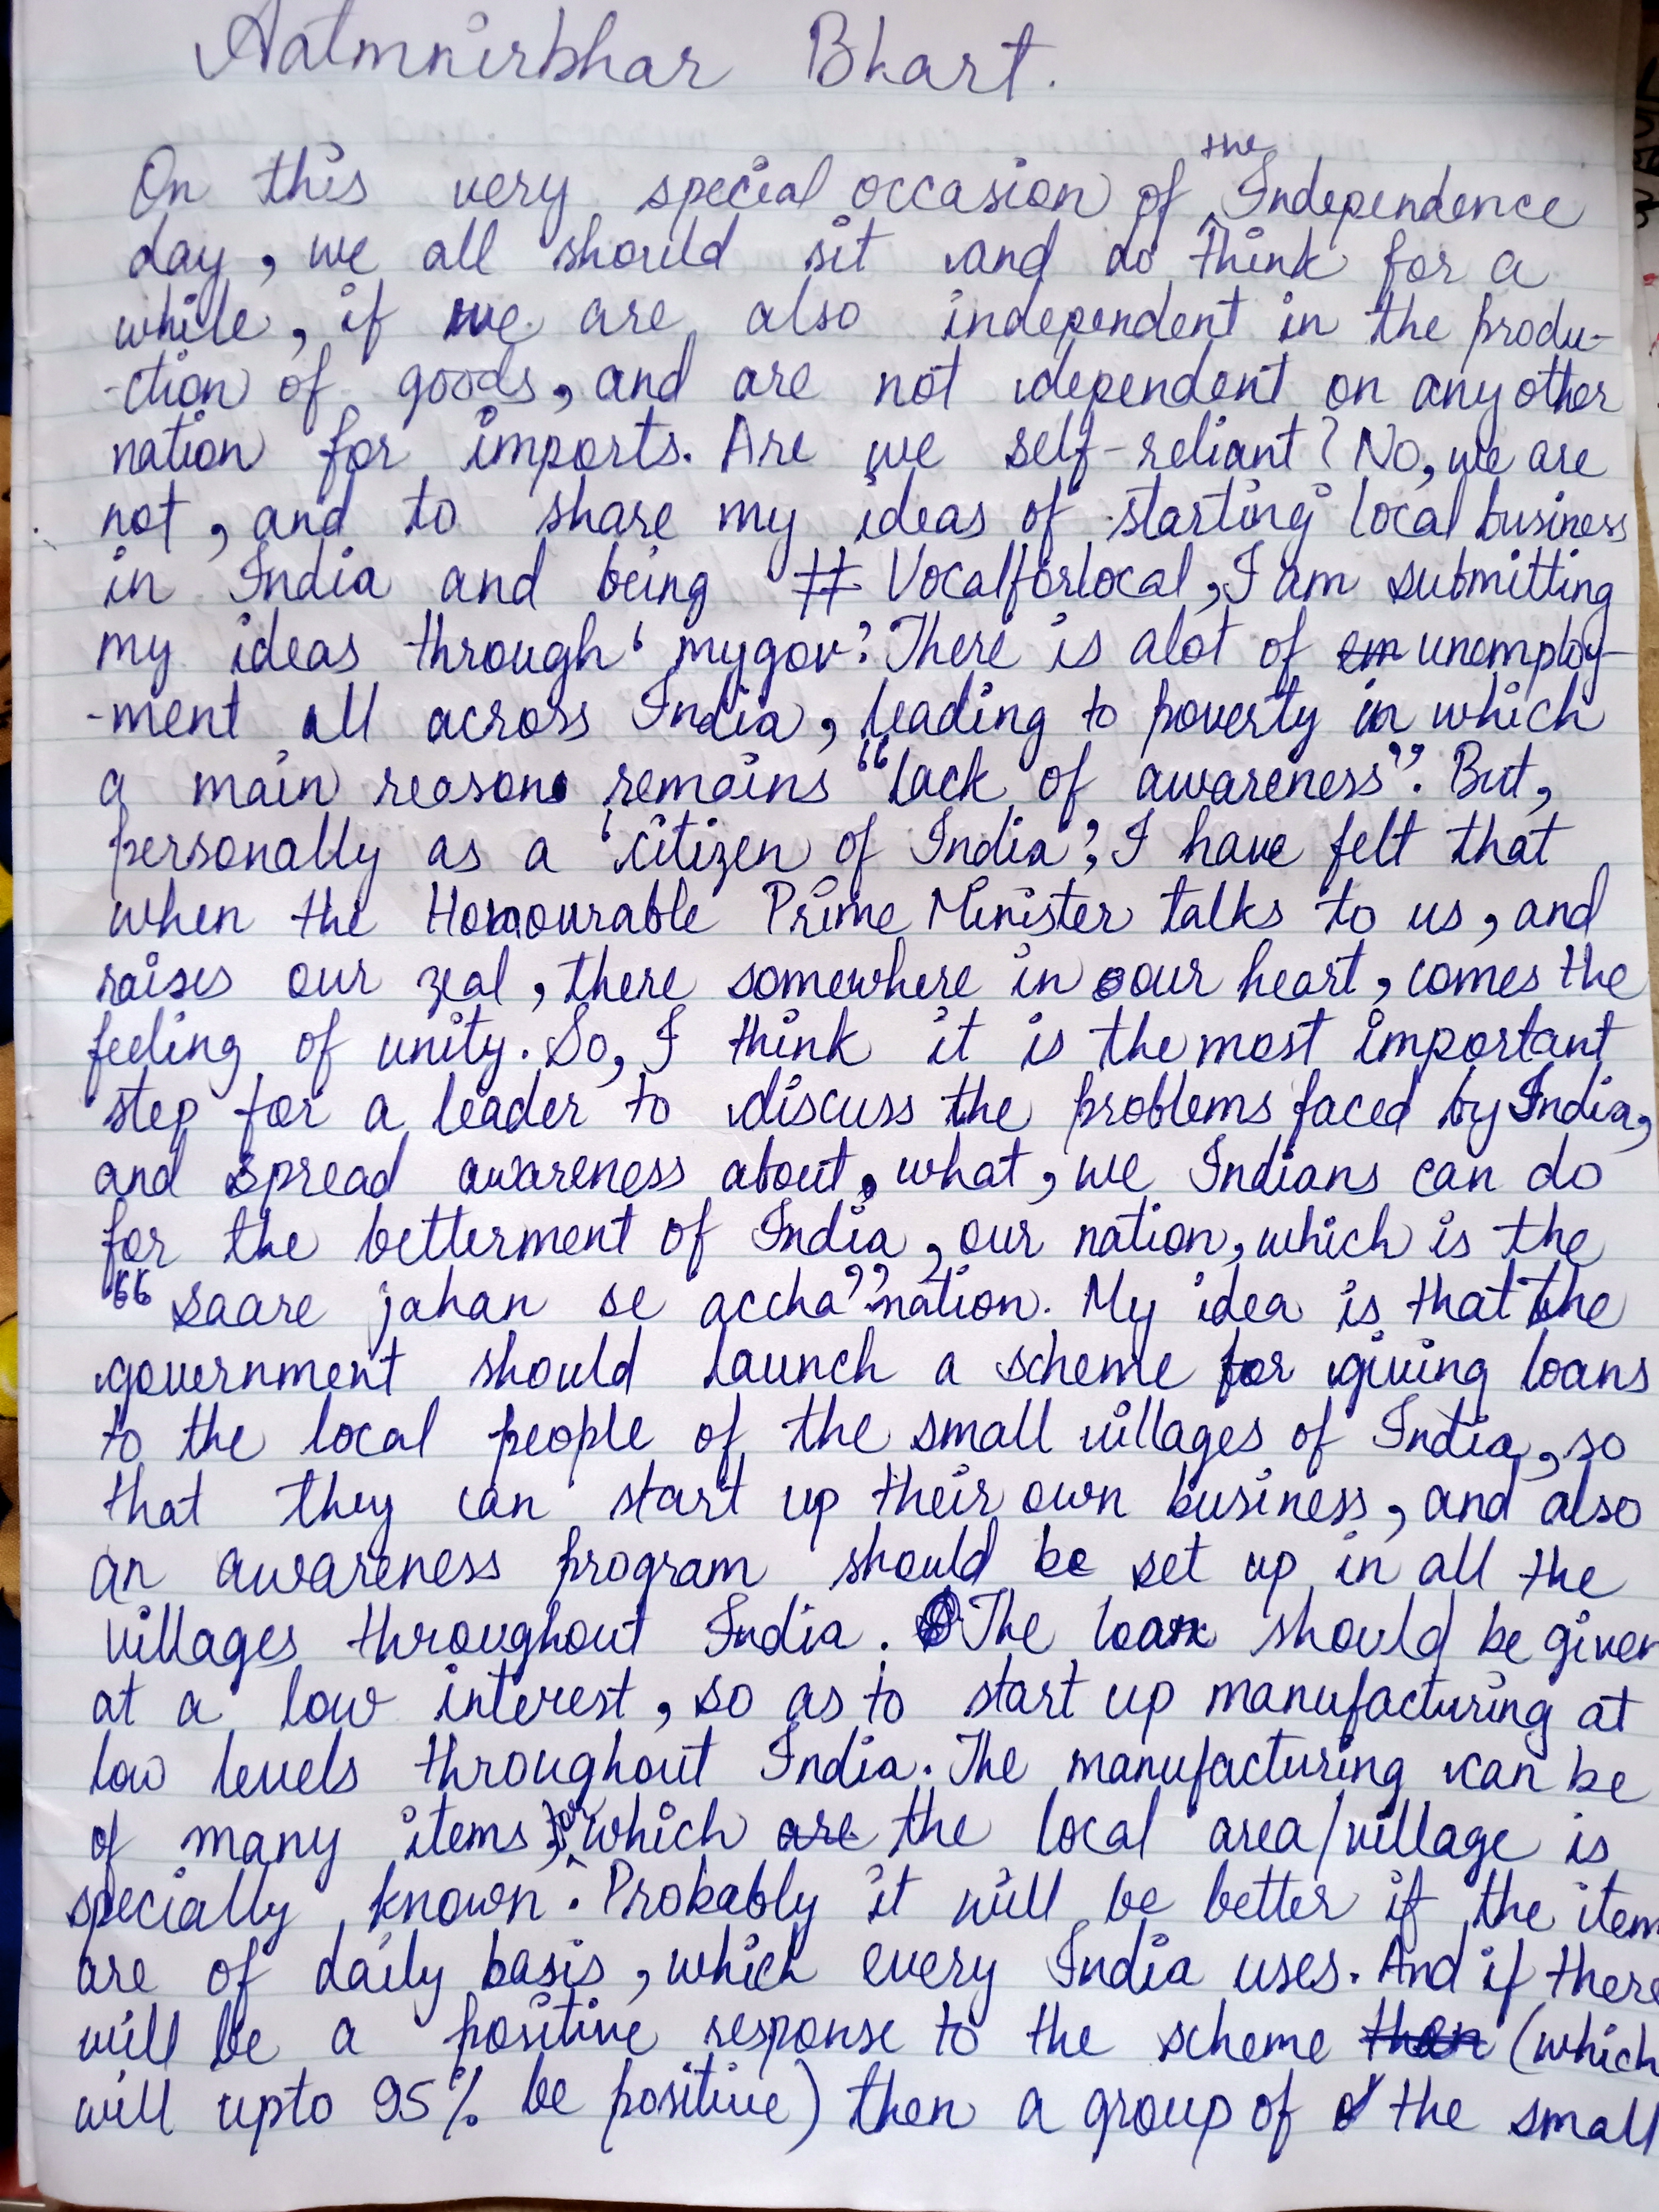 Aatmnirbhar Bhart.
On this very special occasion of the Independence
day, we all should sit and do think for a
while, if we are also independent in the produ-
-ction of goods, and are not dependent on any other
nation for imports. Are we self-reliant? No, we are
not, and to share my ideas of starting local business
in India and being # Vocalforlocal, I am submitting
my ideas through 'mygov'. There is alot of em unemploy-
-ment all across India, leading to poverty in which
a main reason remains "lack of awareness". But,
personally as a 'citizen of India', I have felt that
when the Honourable Prime Minister talks to us, and
raises our zeal, there somewhere in our heart, comes the
feeling of unity. So, I think it is the most important
step for a leader to discuss the problems faced by India,
and spread awareness about, what, we Indians can do
for the betterment of India, our nation, which is the
"saare jahan se accha" nation. My idea is that the
government should launch a scheme for giving loans
to the local people of the small villages of India, so
that they can start up their own business, and also
an awareness program should be set up in all the
villages throughout India. The loan should be given
at a low interest, so as to start up manufacturing at
low levels throughout India. The manufacturing can be
of many items, for which are the local area/village is
specially known. Probably it will be better if the item
are of daily basis, which every India uses. And if there
will be a positive response to the scheme then (which
will upto 95% be positive) then a group of the small